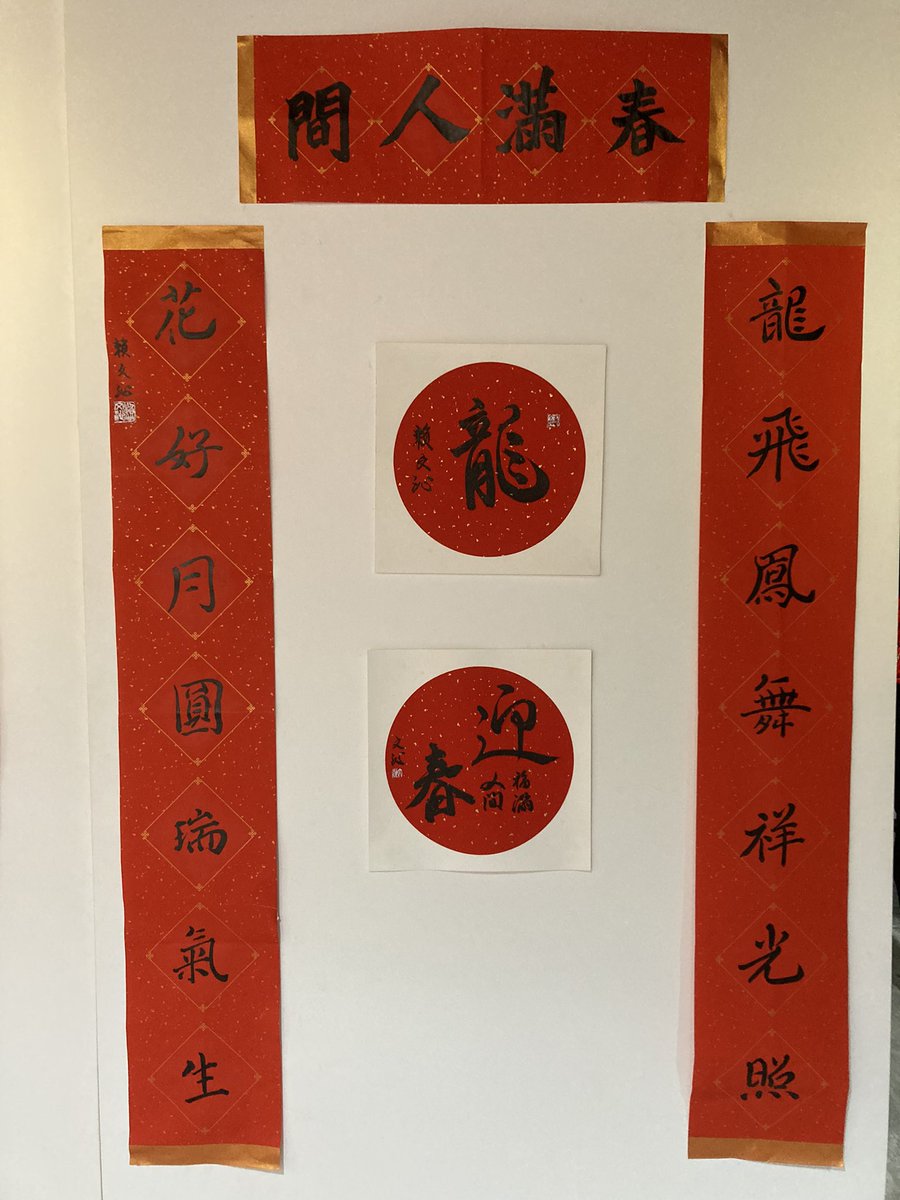 春滿人間
龍飛鳳舞祥光照
花好月圓瑞氣生
賴文沁
龍
賴文沁
迎春
福滿
人間
文沁